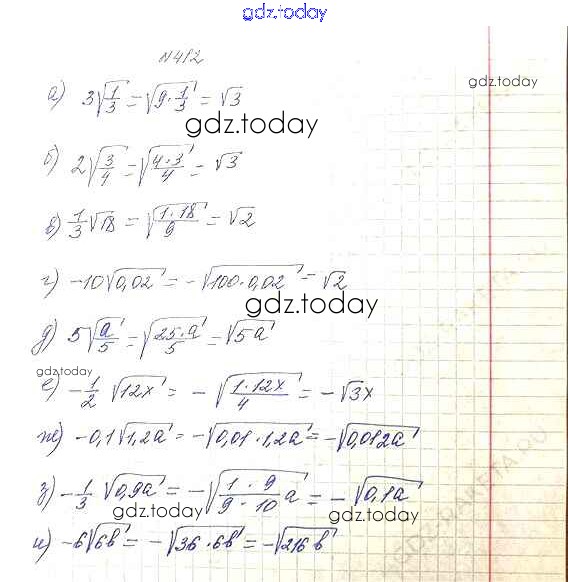 gdz.today
N 412
gdz.today
а) 3√(1/3) = √(9·1/3) = √3
gdz.today
б) 2√(3/4) = √(4·3/4) = √3
в) 1/3 √18 = √(1·18/9) = √2
г) -10√0,02 = -√(100·0,02) = √2
gdz.today
д) 5√(a/5) = √(25·a/5) = √5a
gdz.today
е) -1/2 √12x = -√(1·12x/4) = -√3x
ж) -0,1√1,2a = -√(0,01·1,2a) = -√0,012a
з) -1/3 √0,9a = -√(1·9/9·10 a) = -√0,1a
gdz.today
gdz.today
и) -6√6b = -√(36·6b) = -√216b